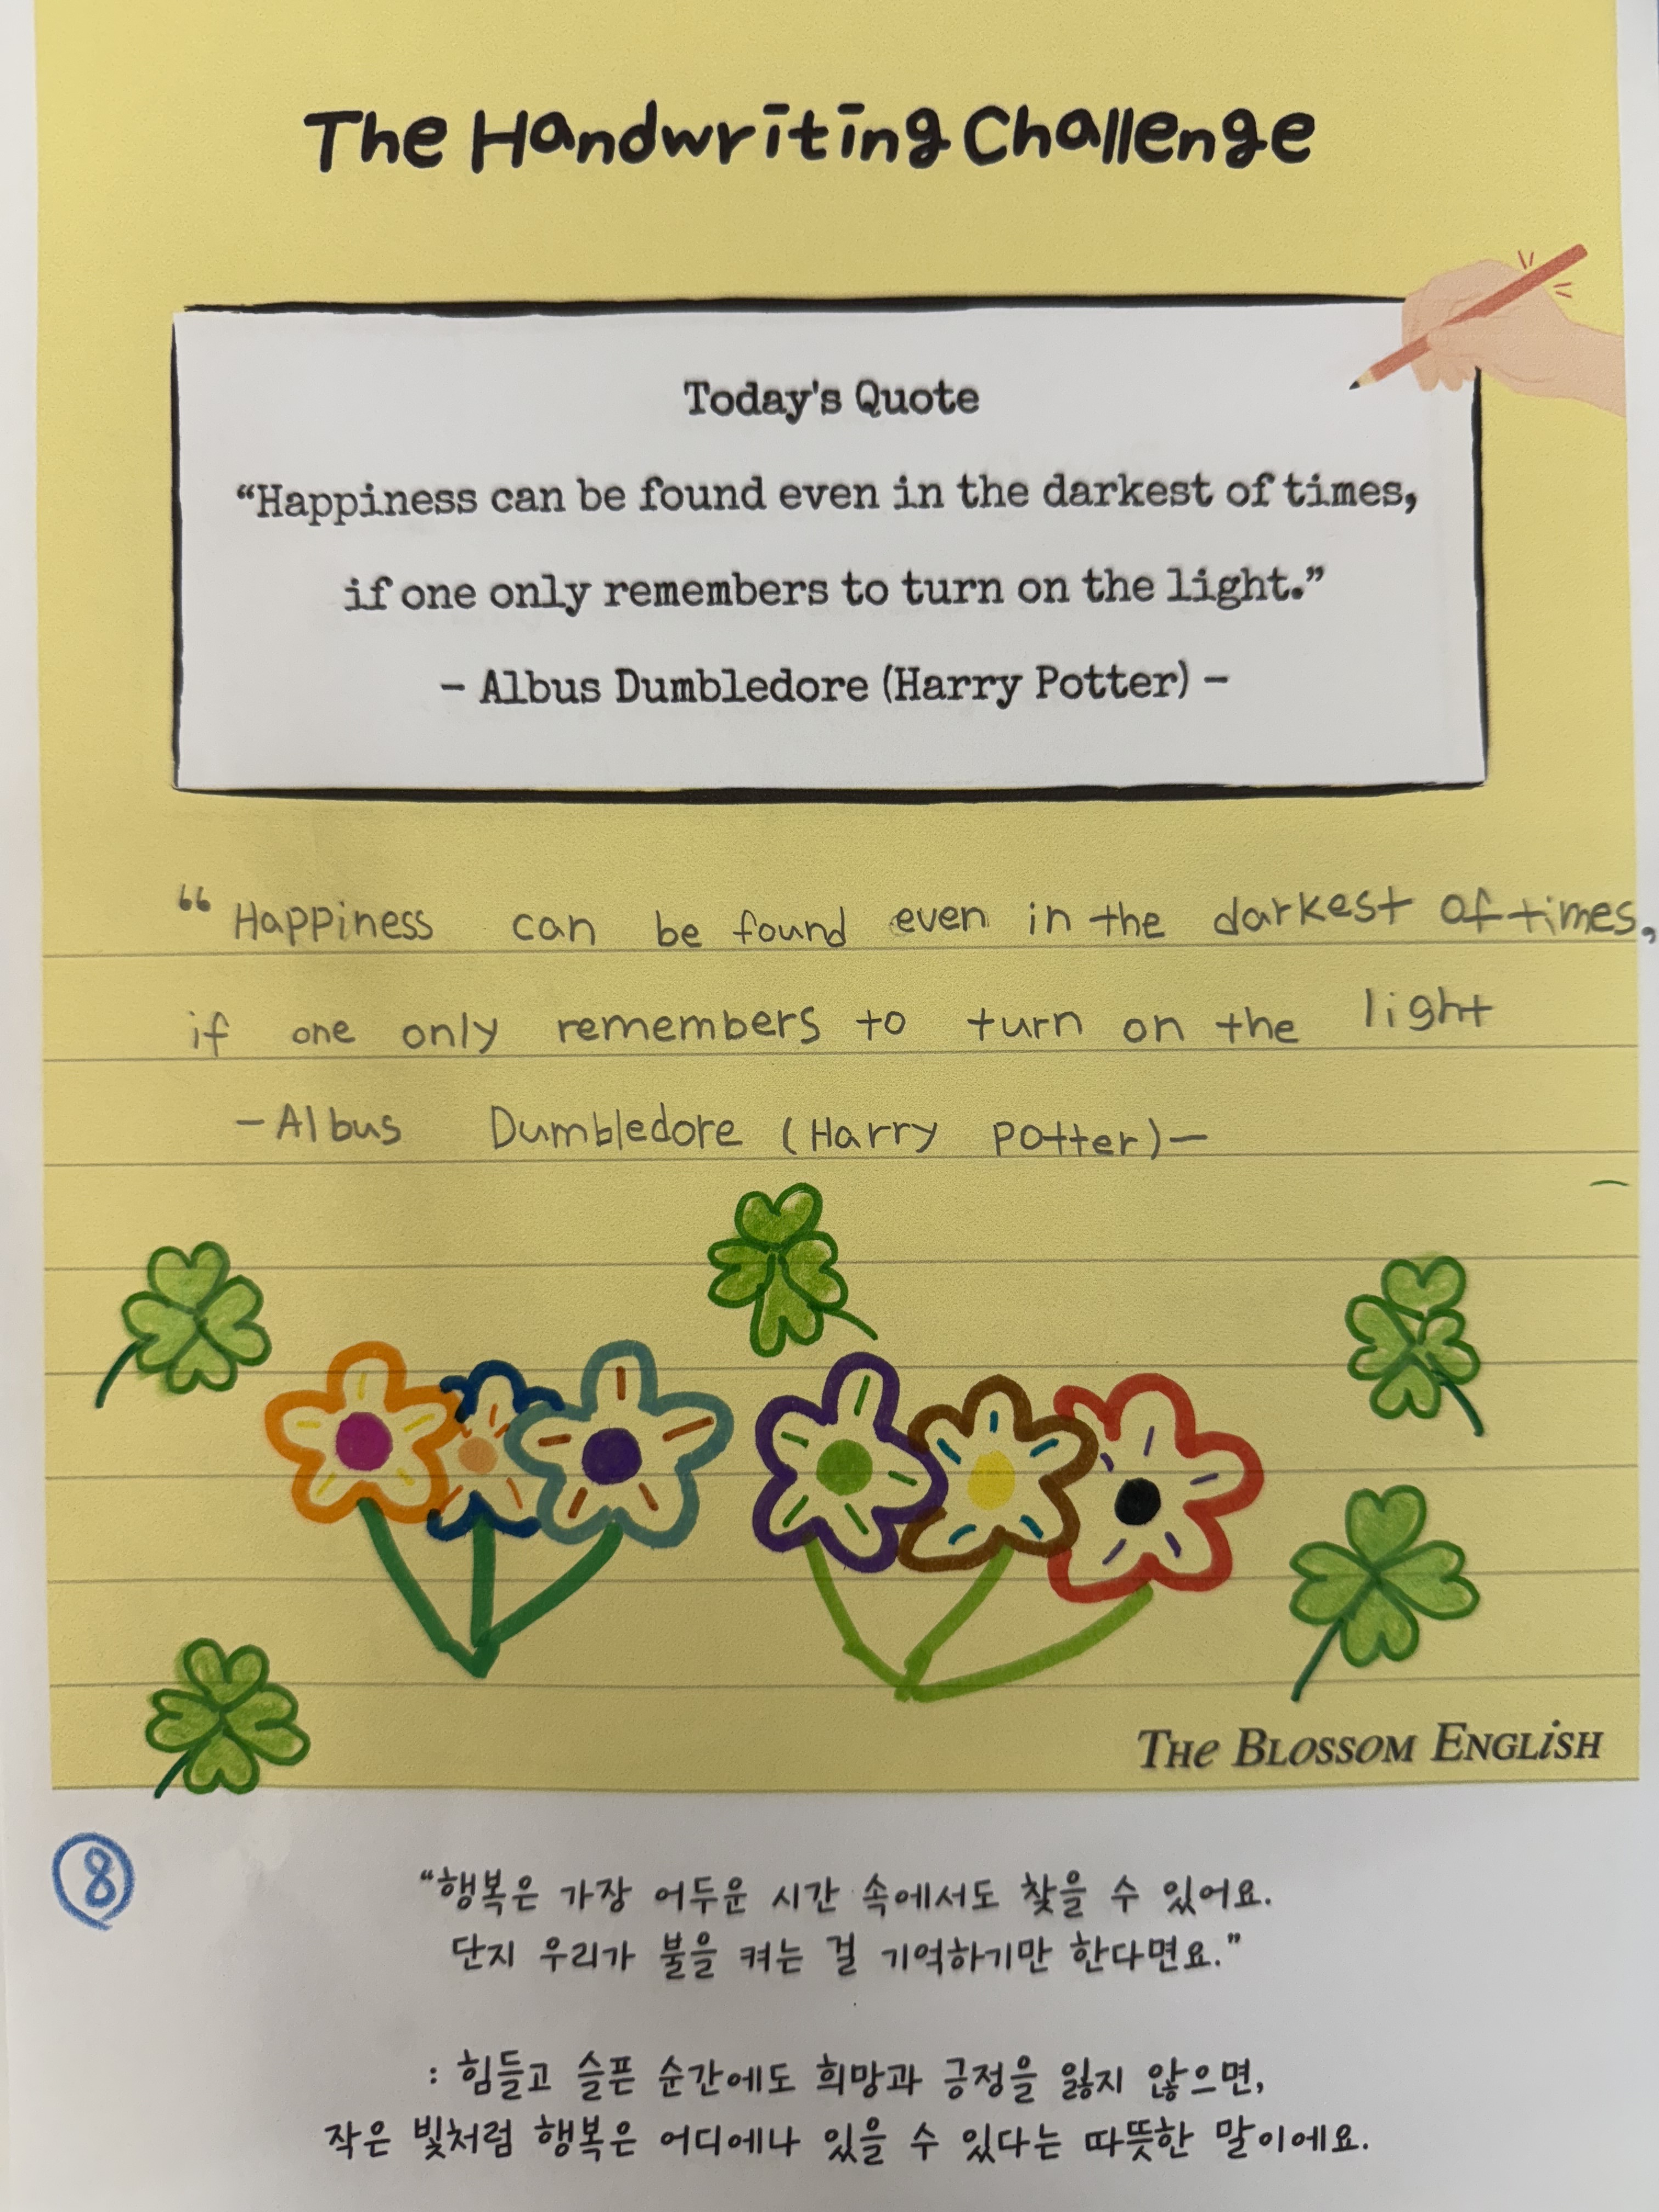 The Handwriting Challenge
Today's Quote
“Happiness can be found even in the darkest of times,
if one only remembers to turn on the light.”
– Albus Dumbledore (Harry Potter) –
“Happiness can be found even in the darkest of times,
if one only remembers to turn on the light
-Albus Dumbledore (Harry Potter)-
The Blossom English
8
“행복은 가장 어두운 시간 속에서도 찾을 수 있어요.
단지 우리가 불을 켜는 걸 기억하기만 한다면요.”
: 힘들고 슬픈 순간에도 희망과 긍정을 잃지 않으면,
작은 빛처럼 행복은 어디에나 있을 수 있다는 따뜻한 말이에요.